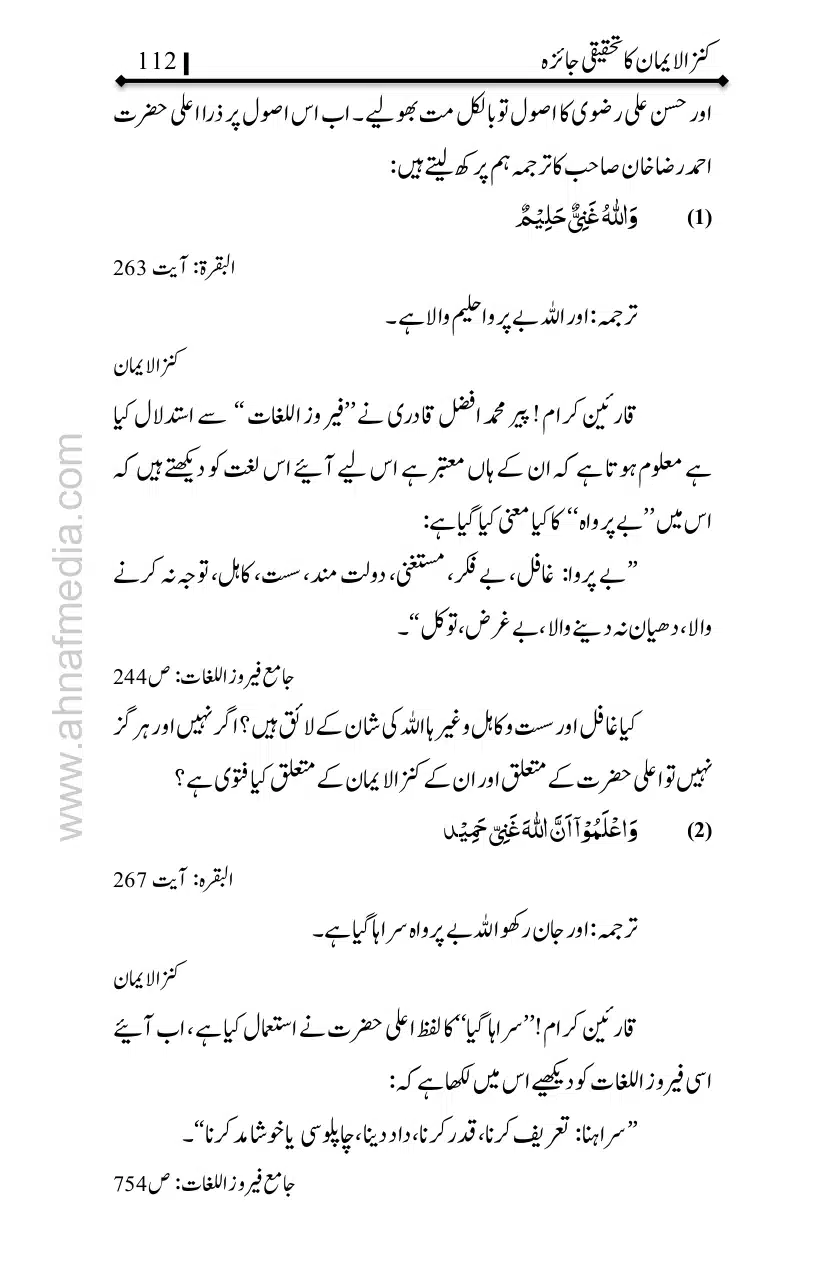 کنزالایمان کا تحقیقی جائزہ 112
اور حسن علی رضوی کا اصول تو بالکل مت بھولیے۔ اب اس اصول پر ذرا اعلی حضرت
احمد رضا خان صاحب کا ترجمہ ہم پرکھ لیتے ہیں:
(1) وَاللّٰهُ غَنِیٌّ حَلِیْمٌ
البقرۃ: آیت 263
ترجمہ: اور اللہ بے پروا حلیم والا ہے۔
کنزالایمان
قارئین کرام! پیر محمد افضل قادری نے ’’فیروز اللغات‘‘ سے استدلال کیا
ہے معلوم ہوتا ہے کہ ان کے ہاں معتبر ہے اس لیے آیئے اس لغت کو دیکھتے ہیں کہ
اس میں ’’بے پرواہ‘‘ کا کیا معنی کیا گیا ہے:
’’بے پروا: غافل، بے فکر، مستغنی، دولت مند، سست، کاہل، توجہ نہ کرنے
والا، دھیان نہ دینے والا، بے غرض، توکل‘‘۔
جامع فیروز اللغات: ص244
کیا غافل اور سست و کاہل وغیرہا اللہ کی شان کے لائق ہیں؟ اگر نہیں اور ہرگز
نہیں تو اعلی حضرت کے متعلق اور ان کے کنزالایمان کے متعلق کیا فتوی ہے؟
(2) وَاعْلَمُوْۤا اَنَّ اللّٰهَ غَنِیّ حَمِیْد
البقرہ: آیت 267
ترجمہ: اور جان رکھو اللہ بے پرواہ سراہا گیا ہے۔
کنزالایمان
قارئین کرام! ’’سراہا گیا‘‘ کا لفظ اعلی حضرت نے استعمال کیا ہے، اب آیئے
اسی فیروز اللغات کو دیکھیے اس میں لکھا ہے کہ:
’’سراہنا: تعریف کرنا، قدر کرنا، داد دینا، چاپلوسی یا خوشامد کرنا‘‘۔
جامع فیروز اللغات: ص754
www.ahnafmedia.com